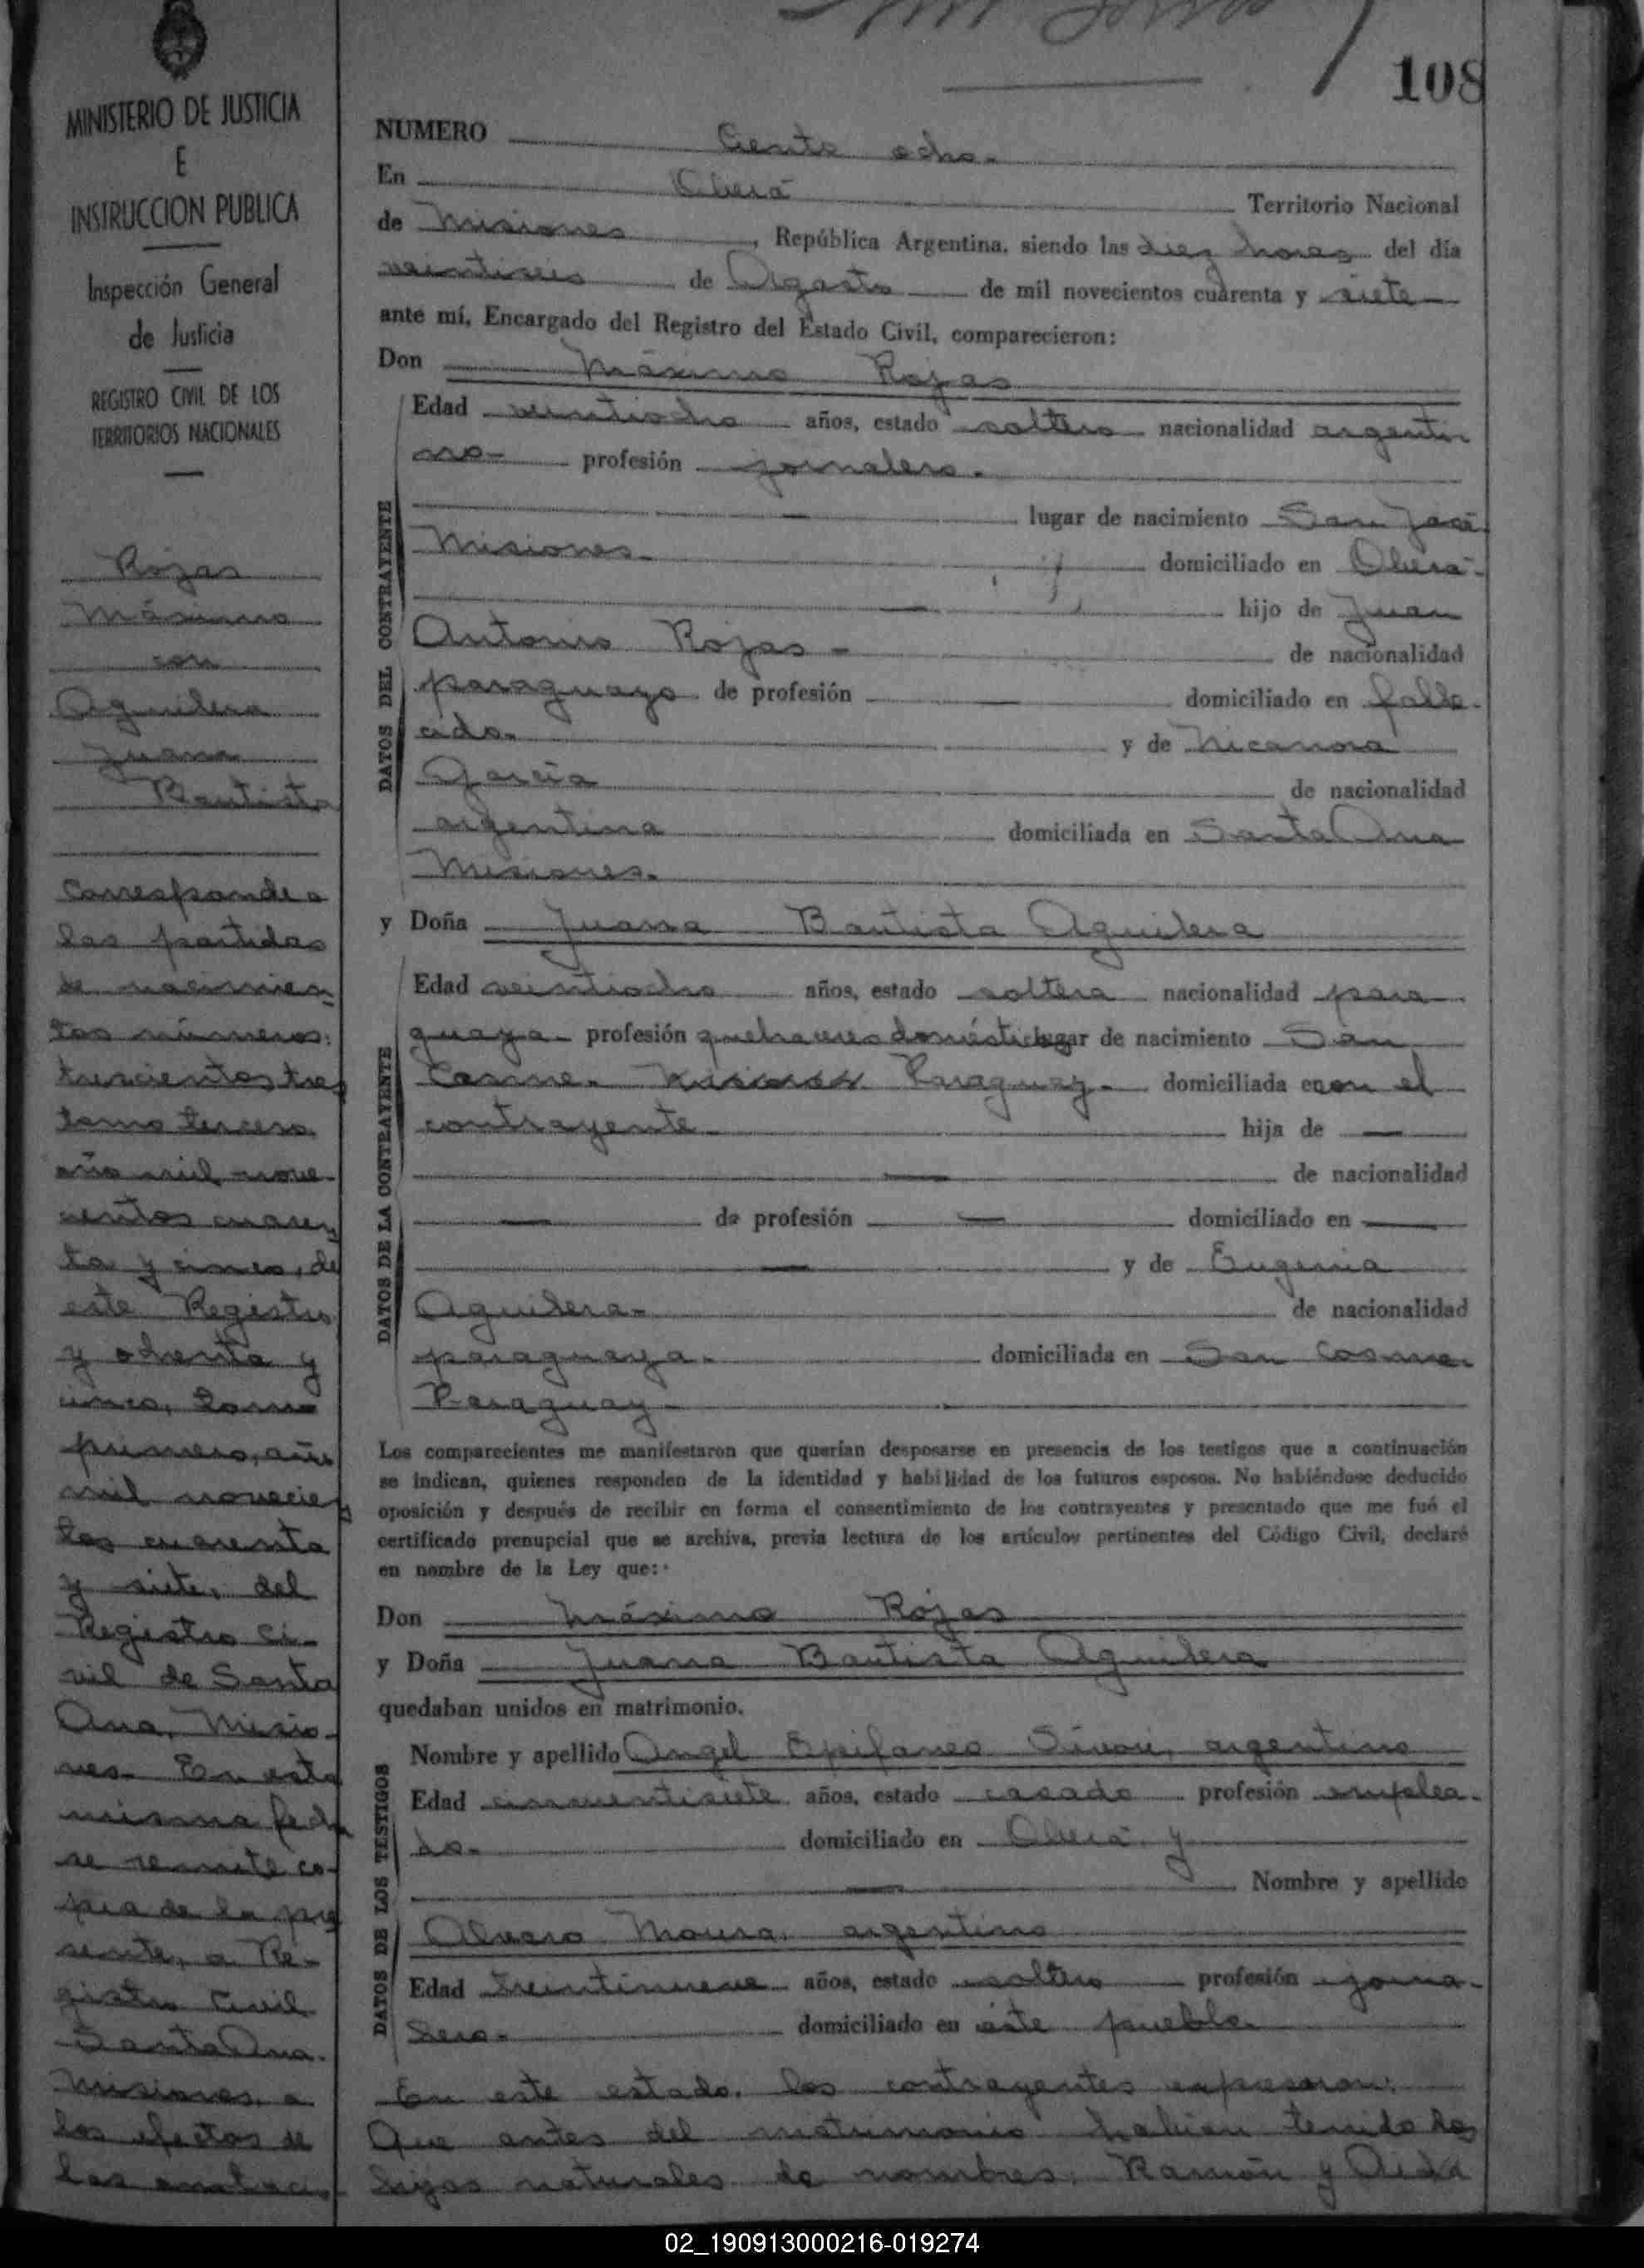 108
MINISTERIO DE JUSTICIA
E
INSTRUCCION PUBLICA
Inspección General
de Justicia
REGISTRO CIVIL DE LOS
TERRITORIOS NACIONALES
Rojas
Máximo
con
Aguilera
Juana
Bautista
Corresponde a
las partidas
de nacimien
tos números:
trescientos tres
tomo tercero
año mil nove-
cientos cuaren
ta y cinco, de
este Registro
y ochenta y
cinco, tomo
primero, año
mil novecien
tos cuarenta
y siete, del
Registro Ci-
vil de Santa
Ana, Misio-
nes. En esta
misma fecha
se remite co-
pia de la pre
sente, a Re-
gistro Civil
Santa Ana.
Misiones, a
los efectos de
las anotacio
NUMERO Ciento ocho.
En Oberá Territorio Nacional
de Misiones, República Argentina, siendo las diez horas del día
veintiseis de Agosto de mil novecientos cuarenta y siete
ante mí, Encargado del Registro del Estado Civil, comparecieron:
Don Máximo Rojas
DATOS DEL CONTRAYENTE
Edad veintiocho años, estado soltero nacionalidad argenti
no- profesión jornalero.
lugar de nacimiento San José
Misiones. domiciliado en Oberá-
hijo de Juan
Antonio Rojas - de nacionalidad
paraguayo de profesión — domiciliado en falle-
cido. y de Nicanora
García de nacionalidad
argentina domiciliada en Santa Ana
Misiones.
y Doña Juana Bautista Aguilera
DATOS DE LA CONTRAYENTE
Edad veintiocho años, estado soltera nacionalidad para
guaya- profesión quehaceres domésticos lugar de nacimiento San
Cosme. Paraguay. domiciliada en con el
contrayente hija de —
— de nacionalidad
— de profesión — domiciliado en —
— y de Eugenia
Aguilera- de nacionalidad
paraguaya. domiciliada en San Cosme.
Paraguay-
Los comparecientes me manifestaron que querían desposarse en presencia de los testigos que a continuación
se indican, quienes responden de la identidad y habilidad de los futuros esposos. No habiéndose deducido
oposición y después de recibir en forma el consentimiento de los contrayentes y presentado que me fué el
certificado prenupcial que se archiva, previa lectura de los artículos pertinentes del Código Civil, declaré
en nombre de la Ley que:
Don Máximo Rojas
y Doña Juana Bautista Aguilera
quedaban unidos en matrimonio.
DATOS DE LOS TESTIGOS
Nombre y apellido Angel Epifaneo argentino
Edad cincuentisiete años, estado casado profesión emplea-
do. domiciliado en Oberá y
— Nombre y apellido
Alvaro Moura, argentino
Edad treintinueve años, estado soltero profesión jorna-
lero. domiciliado en éste pueblo.
En este estado, los contrayentes expresaron:
Que antes del matrimonio habian tenido dos
hijos naturales de nombres: Ramón y Aida
02_190913000216-019274